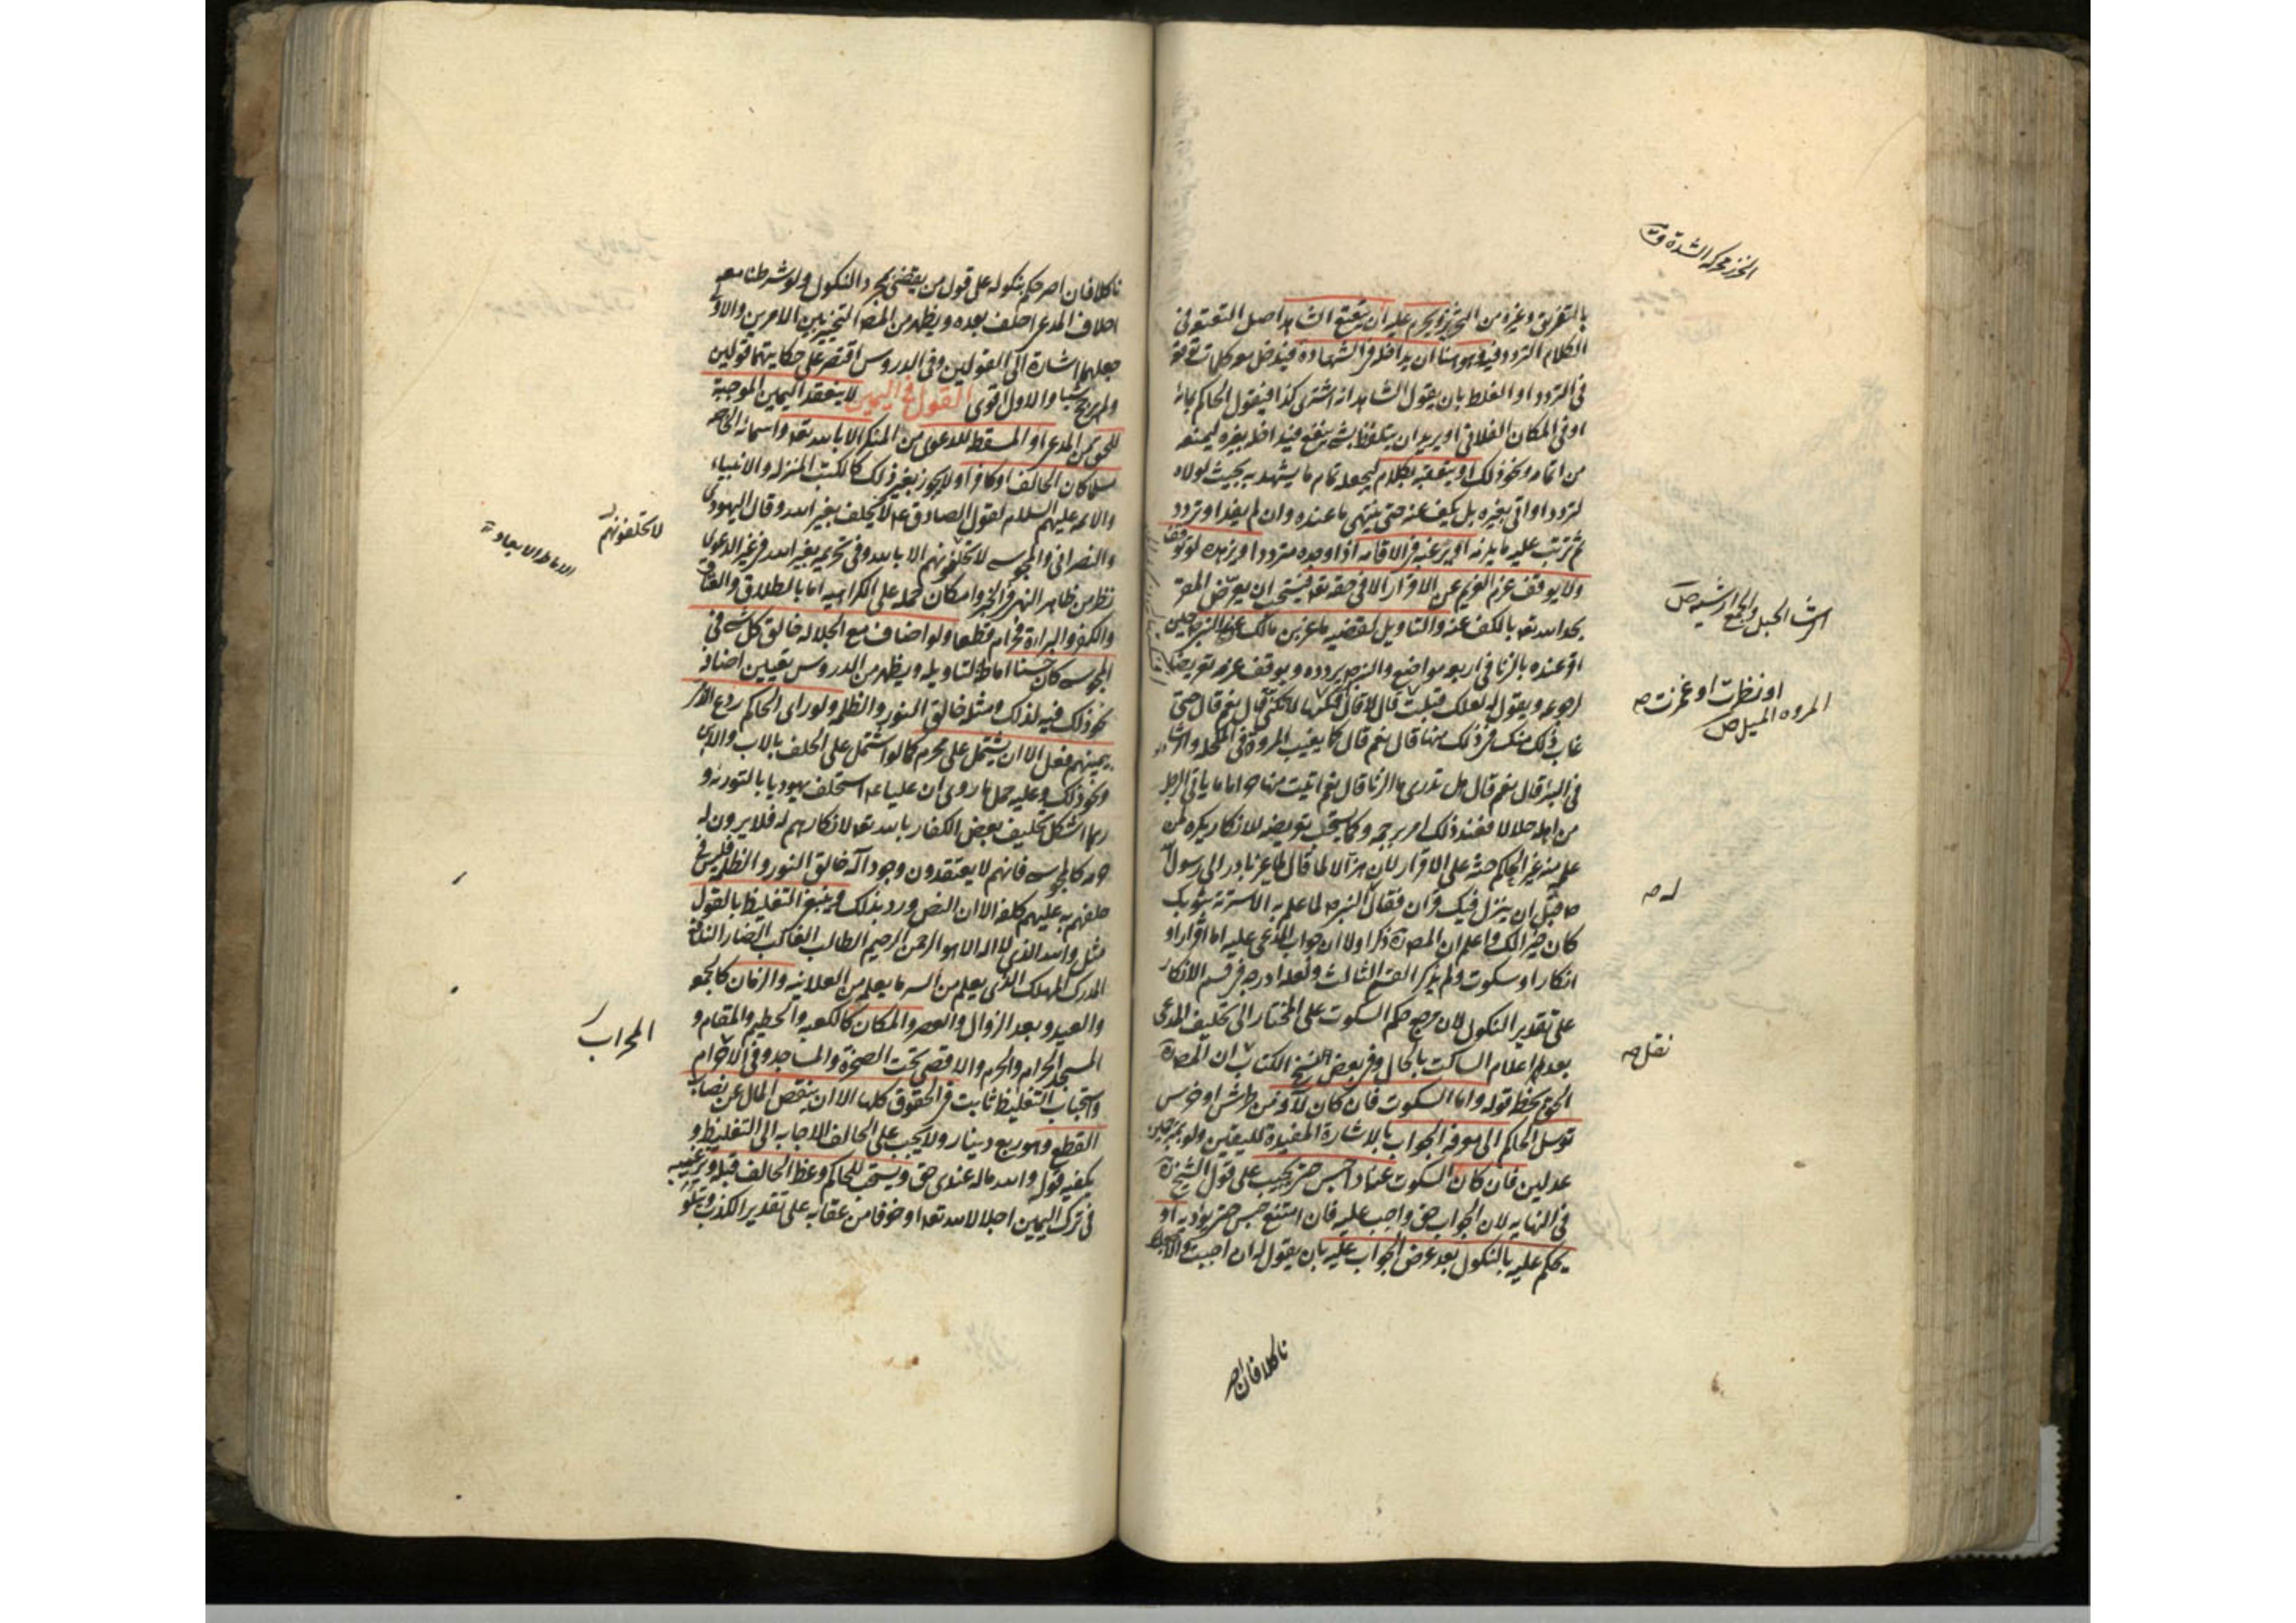 بالتفريق وغيره من التحزيز ويحرم عليه ان يتعتع الشاهد اصل التعتعة في
الكلام التردد فيه وهو هنا ان يداخله في الشهادة فيدخل معه كلمات توقعه
في التردد او الغلط بان يقول الشاهد انه اشترى كذا فيقول الحاكم بمائة
او في المكان الفلاني او يريد ان يتلفظ بشئ ينفع فيداخله بغيره ليمنعه
من اتمامه ونحو ذلك او يتعقبه بكلام ليجعله تمام ما يشهد به بحيث لولاه
لتردد او اتى بغيره بل يكف عنه حتى ينتهي ما عنده وان لم يفد او تردد
ثم ترتب عليه ما يلزمه او يرغبه في الاقامة اذا وجده مترددا او يزهده لو توقف
ولا يوقف عزم الغريم عن الاقرار الا في حقه تعه فيستحب ان يعرض المقر
بحد الله تعه بالكف عنه والتاويل لقضية ماعز بن مالك عند النبي ص حين
اقر عنده بالزنا في اربعة مواضع والنبي ص يردده ويوقف عزمه تعريضا
لرجوعه ويقول له لعلك قبلت قال لا قال افنكتها لا تكني قال نعم قال حتى
غاب ذلك منك في ذلك منها قال نعم قال كما يغيب المرود في المكحلة والرشاء
في البئر قال نعم قال هل تدري ما الزنا قال نعم اتيت منها حراما ما ياتي الرجل
من اهله حلالا فعند ذلك امر برجمه وكما يستحب تعريضه للانكار يكره لمن
علمه منه غير الحاكم حثه على الاقرار لان هزالا لما قال لماعز بادر الى رسول الله
ص قبل ان ينزل فيك قران فقال النبي ص لما علم به الا سترته بثوبك
كان خيرا لك واعلم ان المص ره ذكر اولا ان جواب المدعى عليه اما اقرار او
انكار او سكوت ولم يذكر القسم الثالث ولعله ادرجه في قسم الانكار
على تقدير النكول لان مرجع حكم السكوت على المختار الى تحليف المدعي
بعد اعلام الساكت بالحال وفي بعض نسخ الكتاب ان المص ره
الحق بخطه قوله واما السكوت فان كان لافة من طرش او خرس
توسل الحاكم الى معرفة الجواب بالاشارة المفيدة لليقين ولو بمترجمين
عدلين فان كان السكوت عنادا حبس حتى يجيب على قول الشيخ ره
في النهاية لان الجواب حق واجب عليه فان امتنع حبس حتى يؤديه او
يحكم عليه بالنكول بعد عرض الجواب عليه بان يقول له ان اجبت والا جعلتك
ناكلا فان اصر
الرشاء الحبل والجمع ارشية ص
او نظرت او غمزت صه
المرود الميل ص
له صه
نقل صه
ناكلا فان اصر حكم بنكوله على قول من يقضي بمجرد النكول ولو شرطنا معه
احلاف المدعي احلف بعده ويظهر من المص التخيير بين الامرين والاولى
جعلهما اشارة الى القولين وفي الدروس اقتصر على حكايتهما قولين
ولم يرجح شيئا والاول اقوى القول في اليمين لا ينعقد اليمين الموجبة
للحق من المدعي او المسقط للدعوى من المنكر الا بالله تعه واسمائه الخاصة
مسلما كان الحالف او كافرا ولا يجوز بغير ذلك كالكتب المنزلة والانبياء
والائمة عليهم السلام لقول الصادق ع لا يحلف بغير الله وقال اليهودي
والنصراني والمجوسي لا تحلفوهم الا بالله وفي تحريمه بغير الله في غير الدعوى
نظر من ظاهر النهي في الخبر وامكان حمله على الكراهية اما بالطلاق والعتاق
والكفر والبراءة فحرام قطعا ولو اضاف مع الجلالة خالق كل شئ في
المجوسي كان حسنا اماطة لتاويله ويظهر من الدروس تعيين اضافة
نحو ذلك فيه لذلك ومثله خالق النور والظلمة ولو راى الحاكم ردع الذمي
بيمينهم فعل الا ان يشتمل على محرم كما لو اشتمل على الحلف بالاب والابن
ونحو ذلك وعليه حمل ما روي ان عليا ع استحلف يهوديا بالتورية و
ربما اشكل تحليف بعض الكفار بالله تعه لانكارهم له فلا يرون له
حرمة كالمجوسي فانهم لا يعتقدون وجود اله خالق النور والظلمة فليس في
حلفهم به عليهم كلفة الا ان النص ورد بذلك وينبغي التغليظ بالقول
مثل والله الذي لا اله الا هو الرحمن الرحيم الطالب الغالب الضار النافع
المدرك المهلك الذي يعلم من السر ما يعلم من العلانية والزمان كالجمعة
والعيد وبعد الزوال والعصر والمكان كالكعبة والحطيم والمقام و
المسجد الحرام والحرم والاقصى تحت الصخرة والمساجد وفي الاحرام
واستحباب التغليظ ثابت في الحقوق كلها الا ان ينقص المال عن نصاب
القطع وهو ربع دينار ولا يجب على الحالف الاجابة الى التغليظ و
يكفيه قوله والله ما له عندي حق ويستحب للحاكم وعظ الحالف قبله وترغيبه
في ترك اليمين اجلالا لله تعه او خوفا من عقابه على تقدير الكذب ويتلو
لا تحلفونهم
الاماطة الابعاد
المحراب